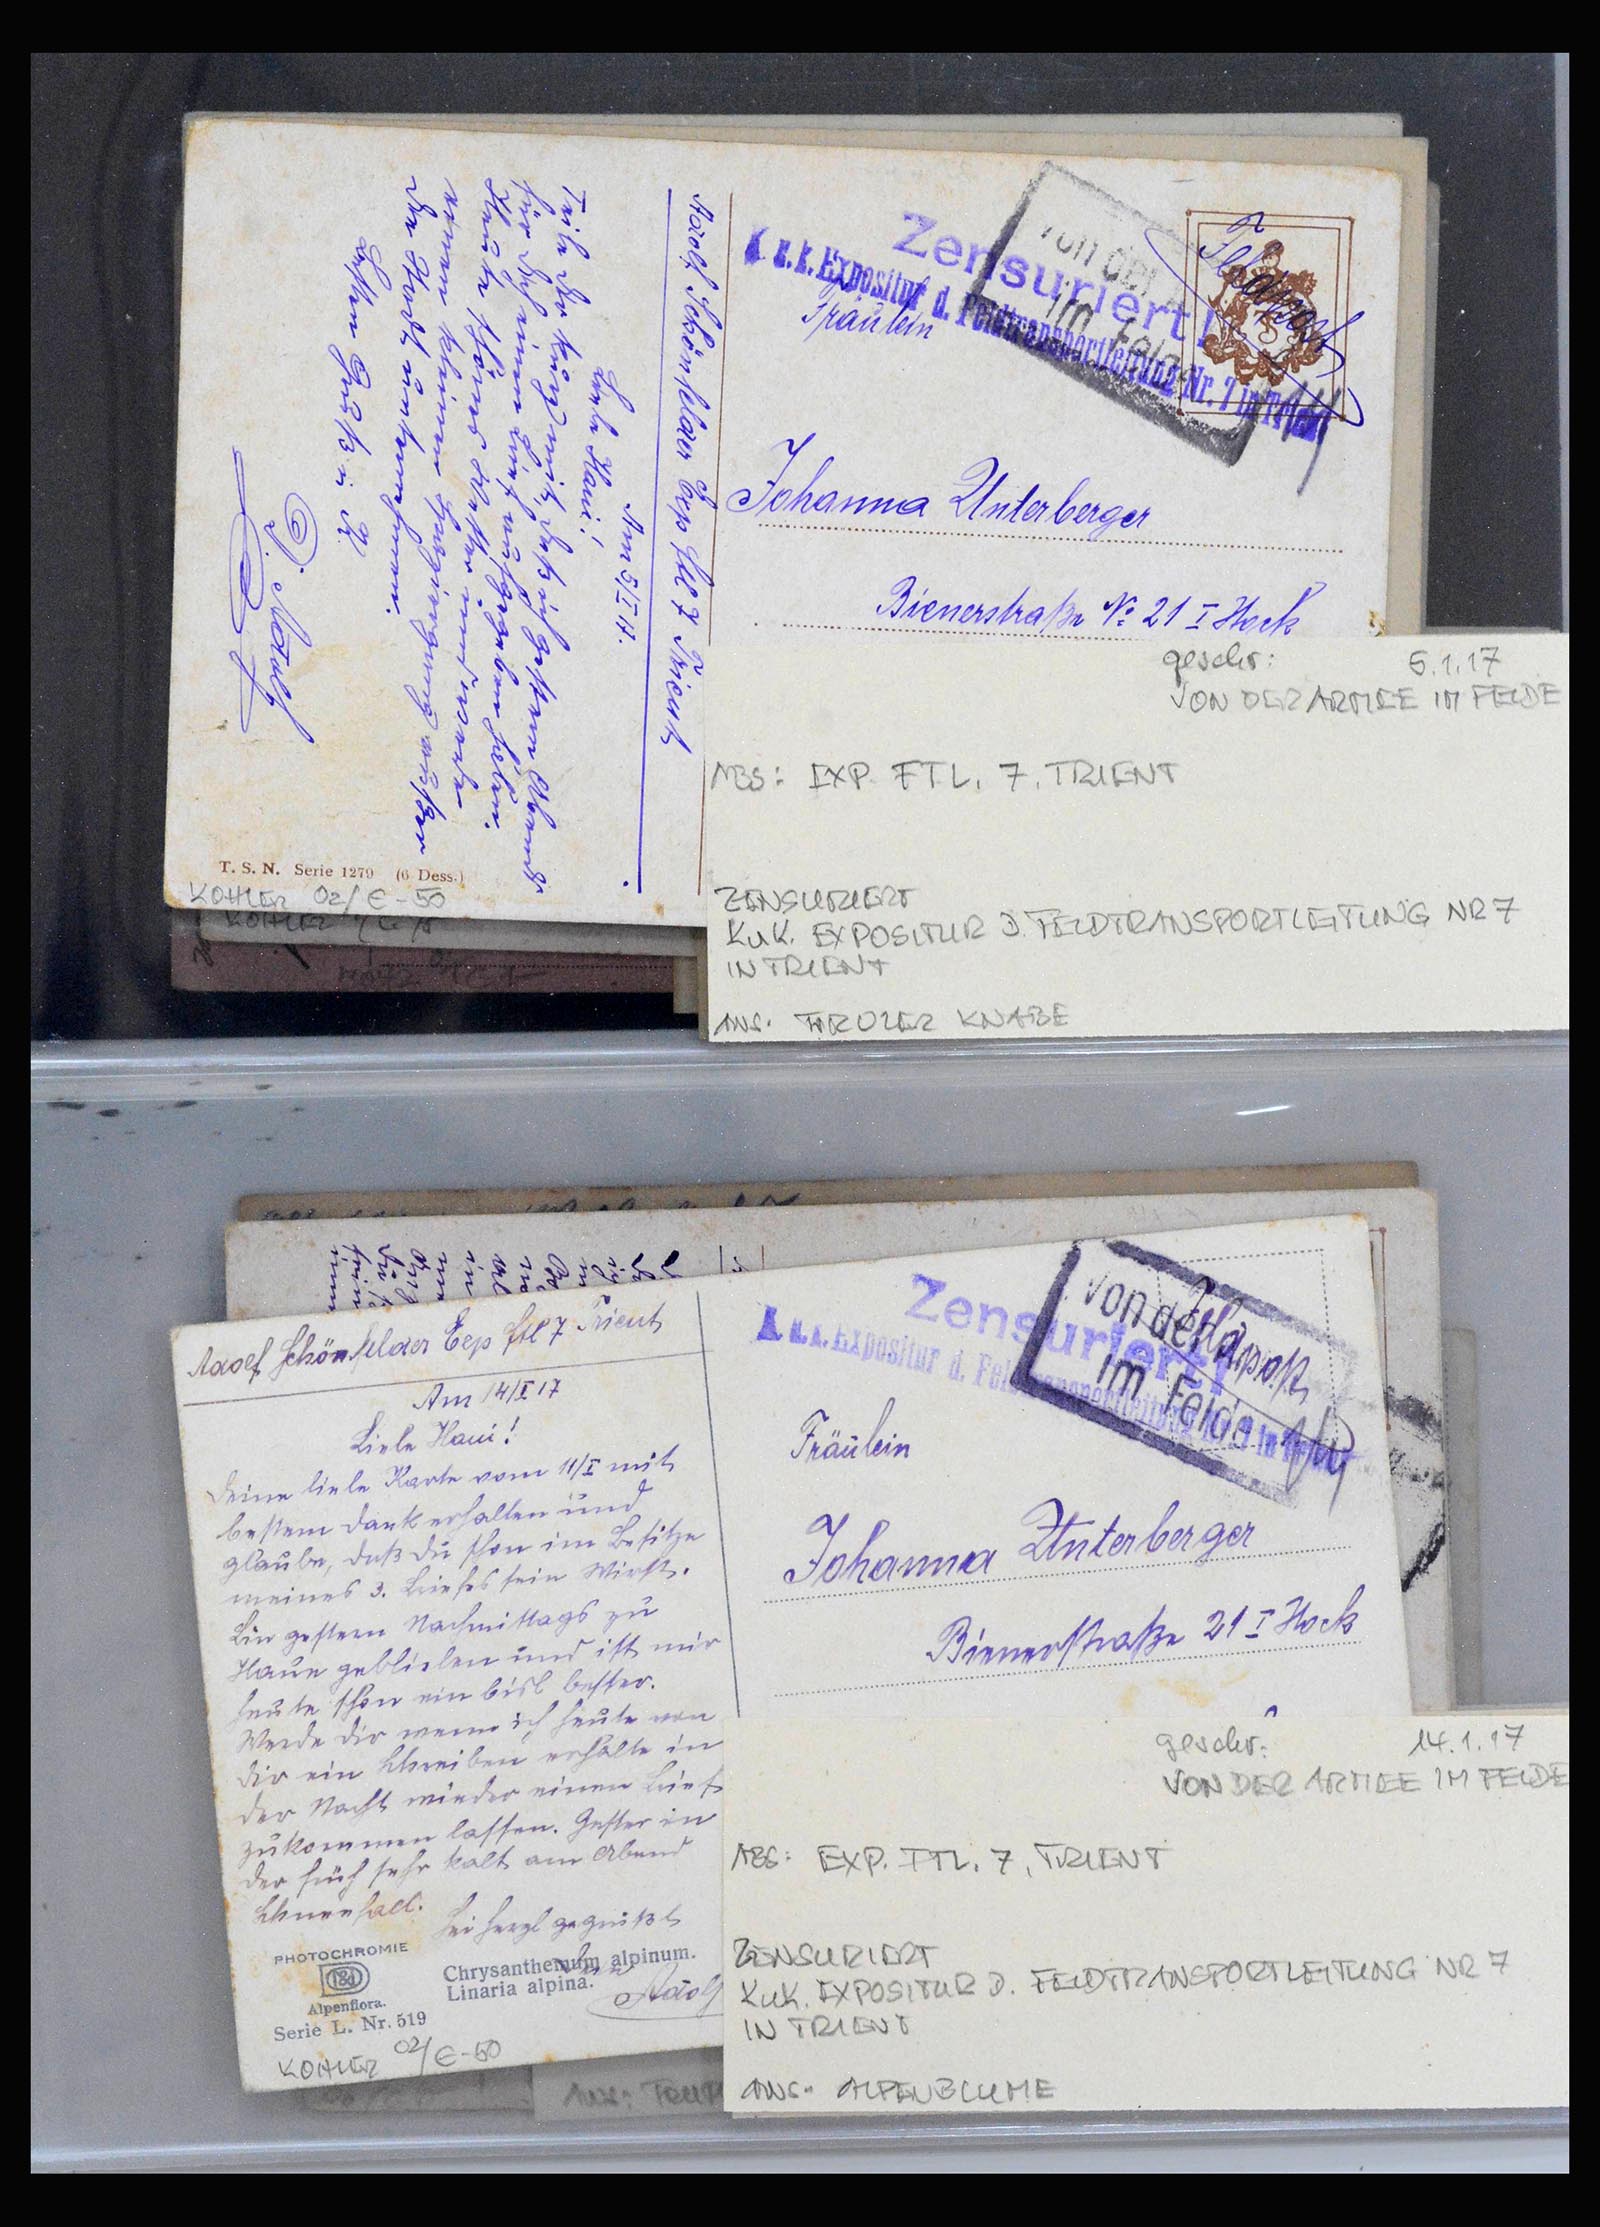 Adolf Schönfelder Exp ftl 7 Trient
Am 5/I 17.
Liebe Hani!
Teile dir kurz mit, daß ich gestern Abends
für dich einen Brief aufgegeben habe.
einen kleinen
Besten Gruß u. K
Adolf
T. S. N. Serie 1279 (6 Dess.)
KOHLER 02/ € -50
KOHLER
Zensuriert!
k. u. k. Expositur d. Feldtransportleitung Nr. 7 in Trient
Von der
im Felde
Feldpost
Fräulein
Johanna Unterberger
Bienerstraße No 21 I Stock
geschr: 5.1.17
VON DER ARMEE IM FELDE
ABS: EXP. FTL. 7, TRIENT
ZENSURIERT
KuK. EXPOSITUR D. FELDTRANSPORTLEITUNG NR 7
IN TRIENT
ANS. TIROLER KNABE
Adolf Schönfelder Exp ftl 7 Trient
Am 14/I 17
Liebe Hani!
Deine liebe Karte vom 11/I mit
bestem Dank erhalten und
glaube, daß du schon im Besitze
meines 3. Briefes sein wirst.
Bin gestern Nachmittags zu
Hause geblieben und ist mir
heute schon ein bisl besser.
Werde dir wenn ich heute von
dir ein Schreiben erhalte in
der Nacht wieder einen Brief
zukommen lassen. Gestern in
der früh sehr kalt am Abend
Schneefall.
Sei herzl gegrüßt
Adolf
PHOTOCHROMIE
Alpenflora.
Serie L. Nr. 519
Chrysanthemum alpinum.
Linaria alpina.
KOHLER 02/ € -50
Zensuriert!
k. u. k. Expositur d. Feldtransportleitung Nr. 7 in Trient
Von der
im Felde
Feldpost
Fräulein
Johanna Unterberger
Bienerstraße 21 I Stock
geschr: 14.1.17
VON DER ARMEE IM FELDE
ABS: EXP. FTL. 7, TRIENT
ZENSURIERT
KuK. EXPOSITUR D. FELDTRANSPORTLEITUNG NR 7
IN TRIENT
ANS. ALPENBLUME